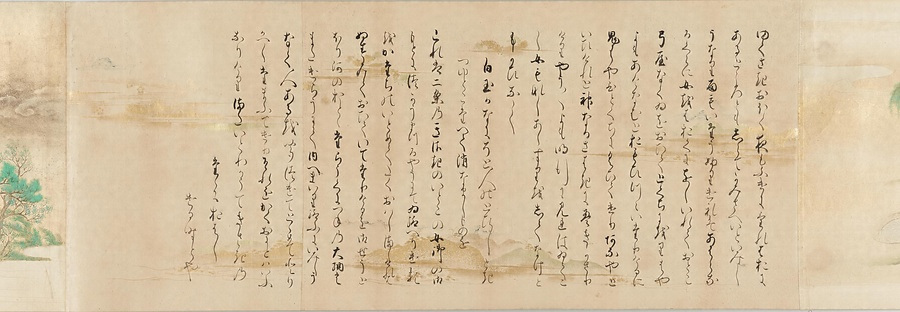 ゆくさきおほく夜もふけにけれはおに
ある所ともしらてかみさへいといみし
うなり雨もいたうふりけれはあはらな
るくらに女をはおくにおしいれておとこ
弓屋なくゐをおひてとくちにをりはや
夜もあけなむとおもひつゝゐたりけるに
鬼はや一くちにくひてけりあなやと
いひけれと神なるさはきにえきかさり
けりやう〳〵夜も明行に見れはゐてこ
し女もなしあしすりをしてなけと
もかひなし
白玉かなにそと人のとひし時
つゆとこたへて消なましものを
これは二条のきさきのいとこの女御の御
もとにつかうまつるやうにてゐ給へりける
をかたちのいとめてたくおはしけれは
ぬすみておひていてたりけるを御せうと
ほり河のおとゝたらうくにつねの大納言
またけらうにて内へまいり給ふにいみしう
なく人あるをきゝつけてとゝめてとり
かへしたまうてけりそれをかくおにとはいふ
なりけりまたいとわかうてきさきの
たゝにおはし
ける時とや